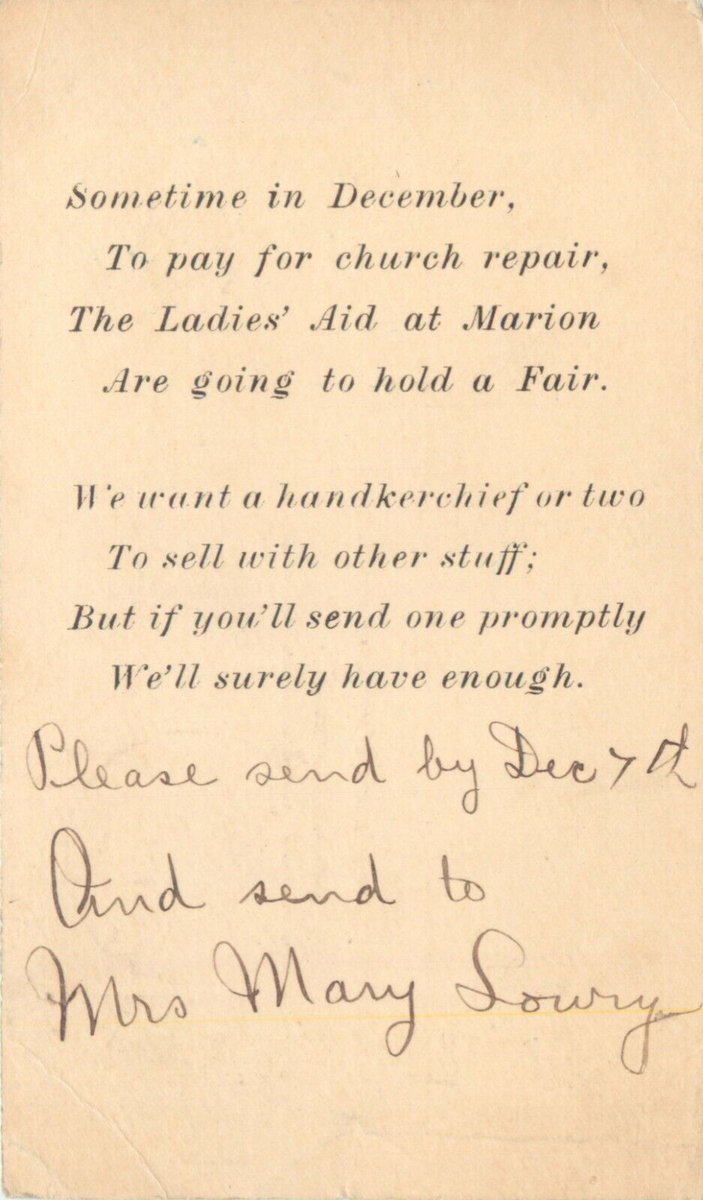 Sometime in December,
To pay for church repair,
The Ladies' Aid at Marion
Are going to hold a Fair.
We want a handkerchief or two
To sell with other stuff;
But if you'll send one promptly
We'll surely have enough.
Please send by Dec 7th
And send to
Mrs Mary Lowry